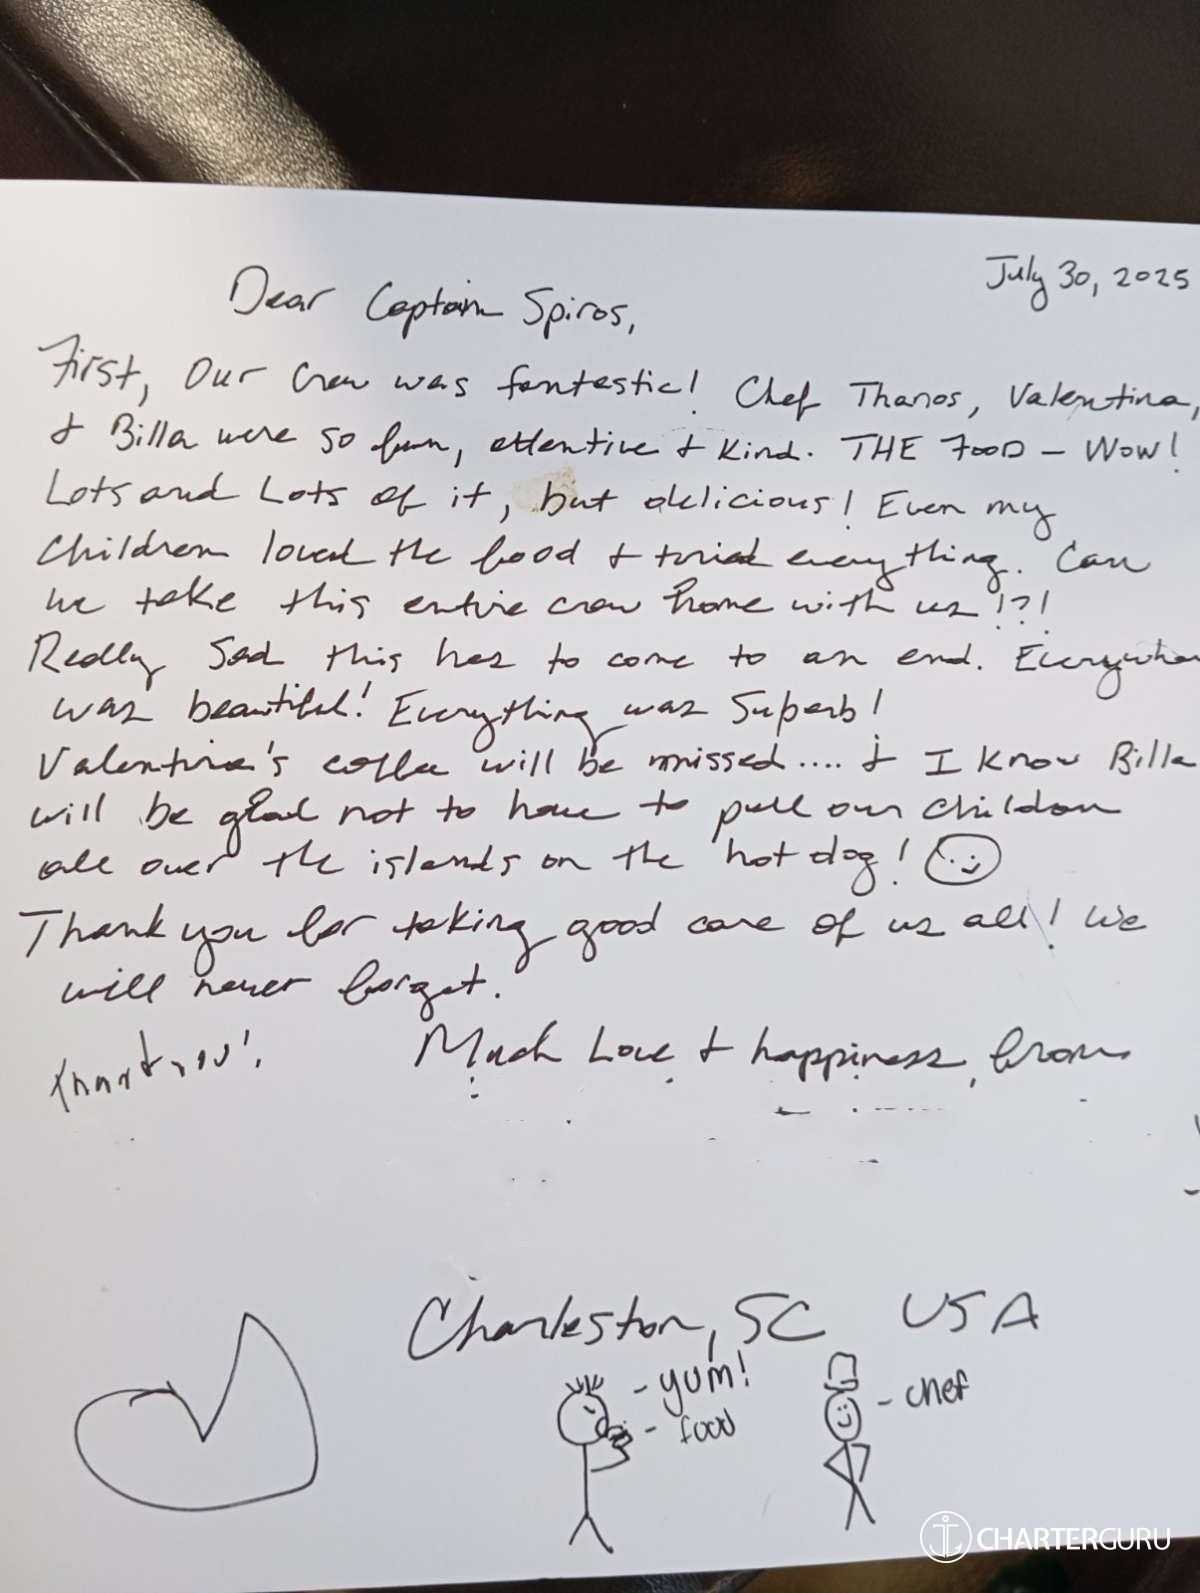 July 30, 2025
Dear Captain Spiros,
First, Our Crew was fantastic! Chef Thanos, Valentina,
& Billa were so fun, attentive & kind. THE FOOD - Wow!
Lots and Lots of it, but delicious! Even my
Children loved the food & tried everything. Can
we take this entire crew home with us!?!
Really sad this has to come to an end. Everywhere
was beautiful! Everything was Superb!
Valentina's coffee will be missed.... & I know Billa
will be glad not to have to pull our children
all over the islands on the hot dog!
Thank you for taking good care of us all! We
will never forget.
Thank you! Much Love & happiness, from
Charleston, SC USA
- yum!
- food
- chef
CHARTERGURU